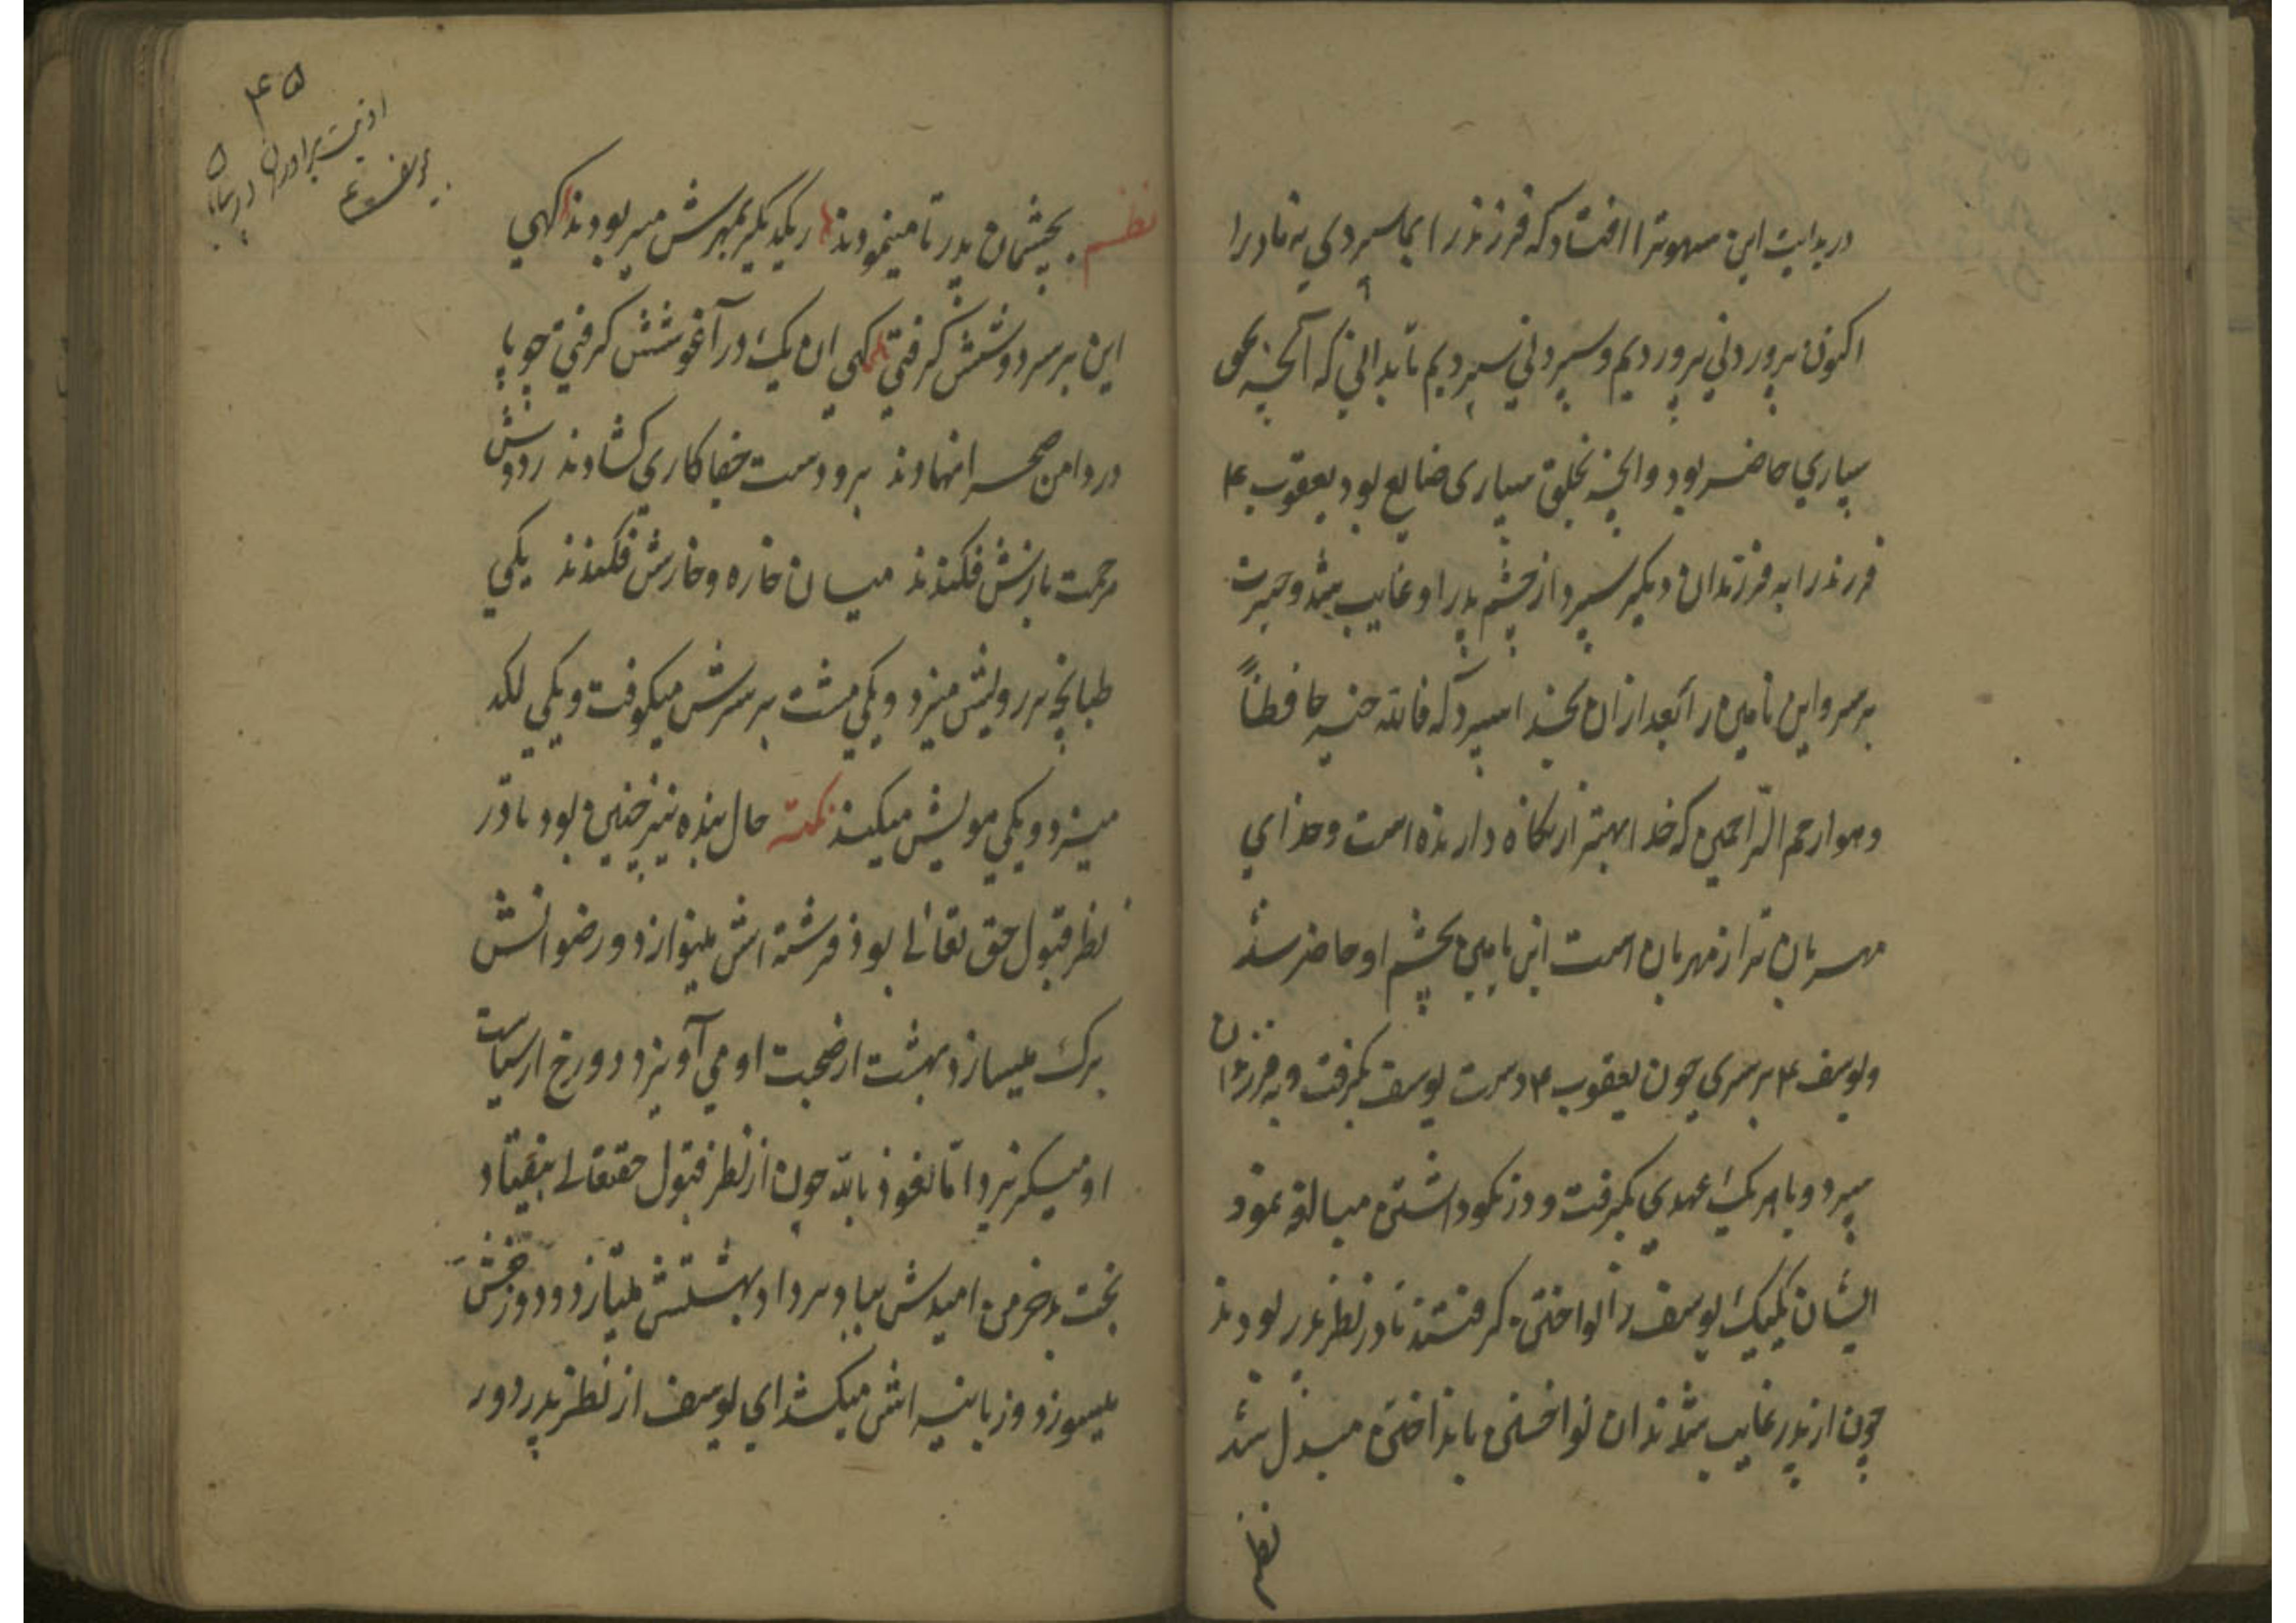 در بدایت این سهو ترا افتاد که فرزند را بما سپردی نه ما درا
اکنون پروردنی پروردیم و سپردنی سپردیم تا بدانی که آنچه بحق
سپاری حاضر بود و انچه بخلق سپاری ضایع بود یعقوب ۴
فرزند را به فرزندان دیگر سپرد از چشم پدر او غایب شد و حیرت
بر سر و ابن یامین را بعد ازان بخدا سپرد که فالله خیر حافظاً
و هو ارحم الرّاحمین که خدا بهتر از نگاه دارنده است و خدای
مهربان تر از مهربان است ابن یامین بچشم او حاضر شد
و یوسف ۴ بر سری چون یعقوب ۴ دست یوسف بگرفت و به فرزندان
سپرد و با هر یک عهدی بگرفت و در نکو داشتن مبالغه نمود
ایشان یکیک یوسف را نواختن گرفتند تا در نظر پدر بودند
چون از پدر غایب شدند ان نواختن باנداختن مبدل شد
نظم
۴۵
اذیت برادران درباره
یوسف ع
نظم بچشمان پدر تا مینمودند ز یکدیگر بمهرش میربودند گهی
این بر سر دوشش گرفتی گهی ان یک در آغوشش گرفتی چو پا
در دامن صحرا نهادند برو دست جفا کاری گشادند ز دوش
مرحمت بارش فکندند میان خاره و خارش فکندند یکی
طبانچه بر رویش میزد و یکی مشت بر سرش میکوفت و یکی لکد
میزد و یکی مویش میکند نکته حال بنده نیز چنین بود تا در
نظر قبول حق تعالی بود فرشته اش مینوازد و رضوانش
برک میسازد بهشت از صحبت او می آویزد دوزخ از سیاست
او میگریزد اما نعوذ بالله چون از نظر قبول حقتعالی بیفتاد
بخت بد خرمن امیدش بباد برداد بهشتش میتازد و دوزخش
میسوزد و زبانیه اش میکشد ای یوسف از نظر پدر دور